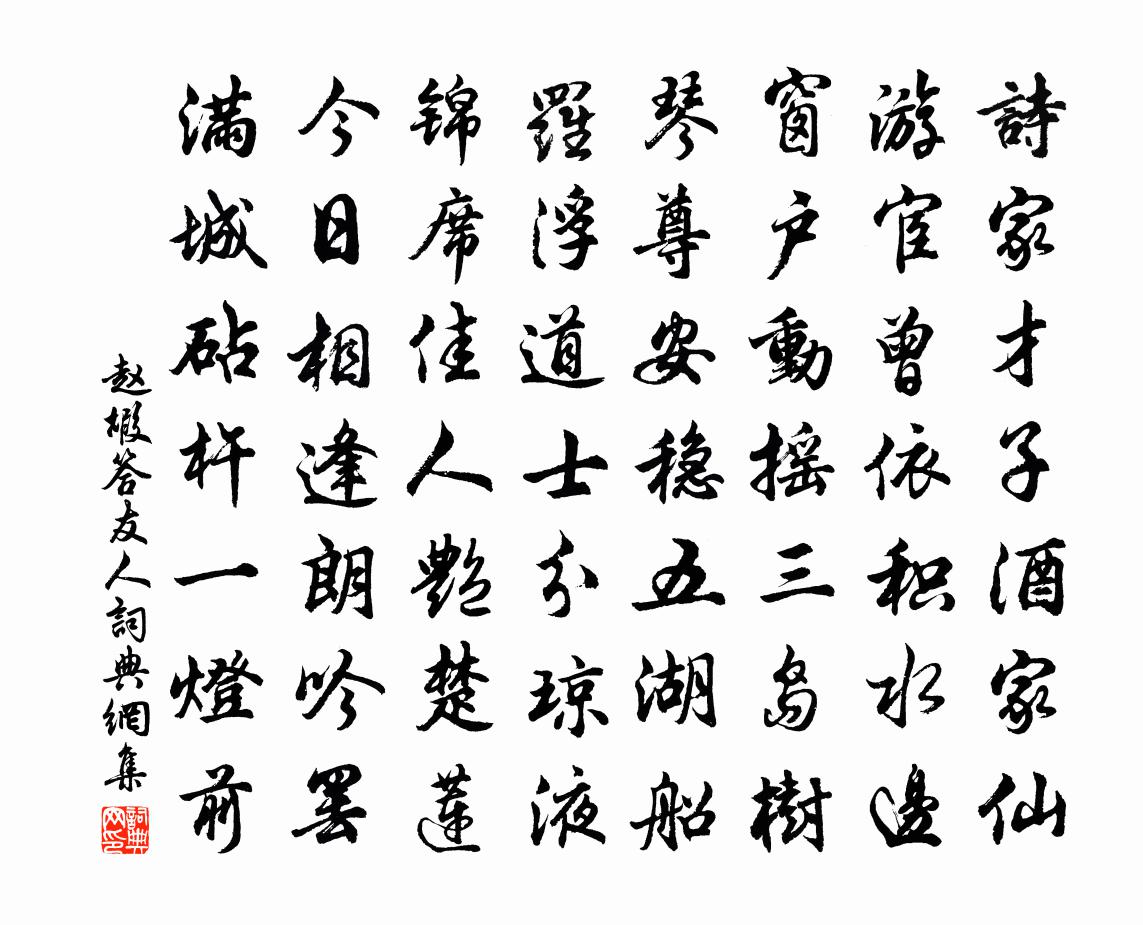 詩家才子酒家仙
游宦曾依积水邊
窗户動摇三岛樹
琴尊安稳五湖船
羅浮道士分琼液
锦席佳人艷楚蓮
今日相逢朗吟罢
满城砧杵一燈前
赵嘏答友人詞典網集
詞典网印